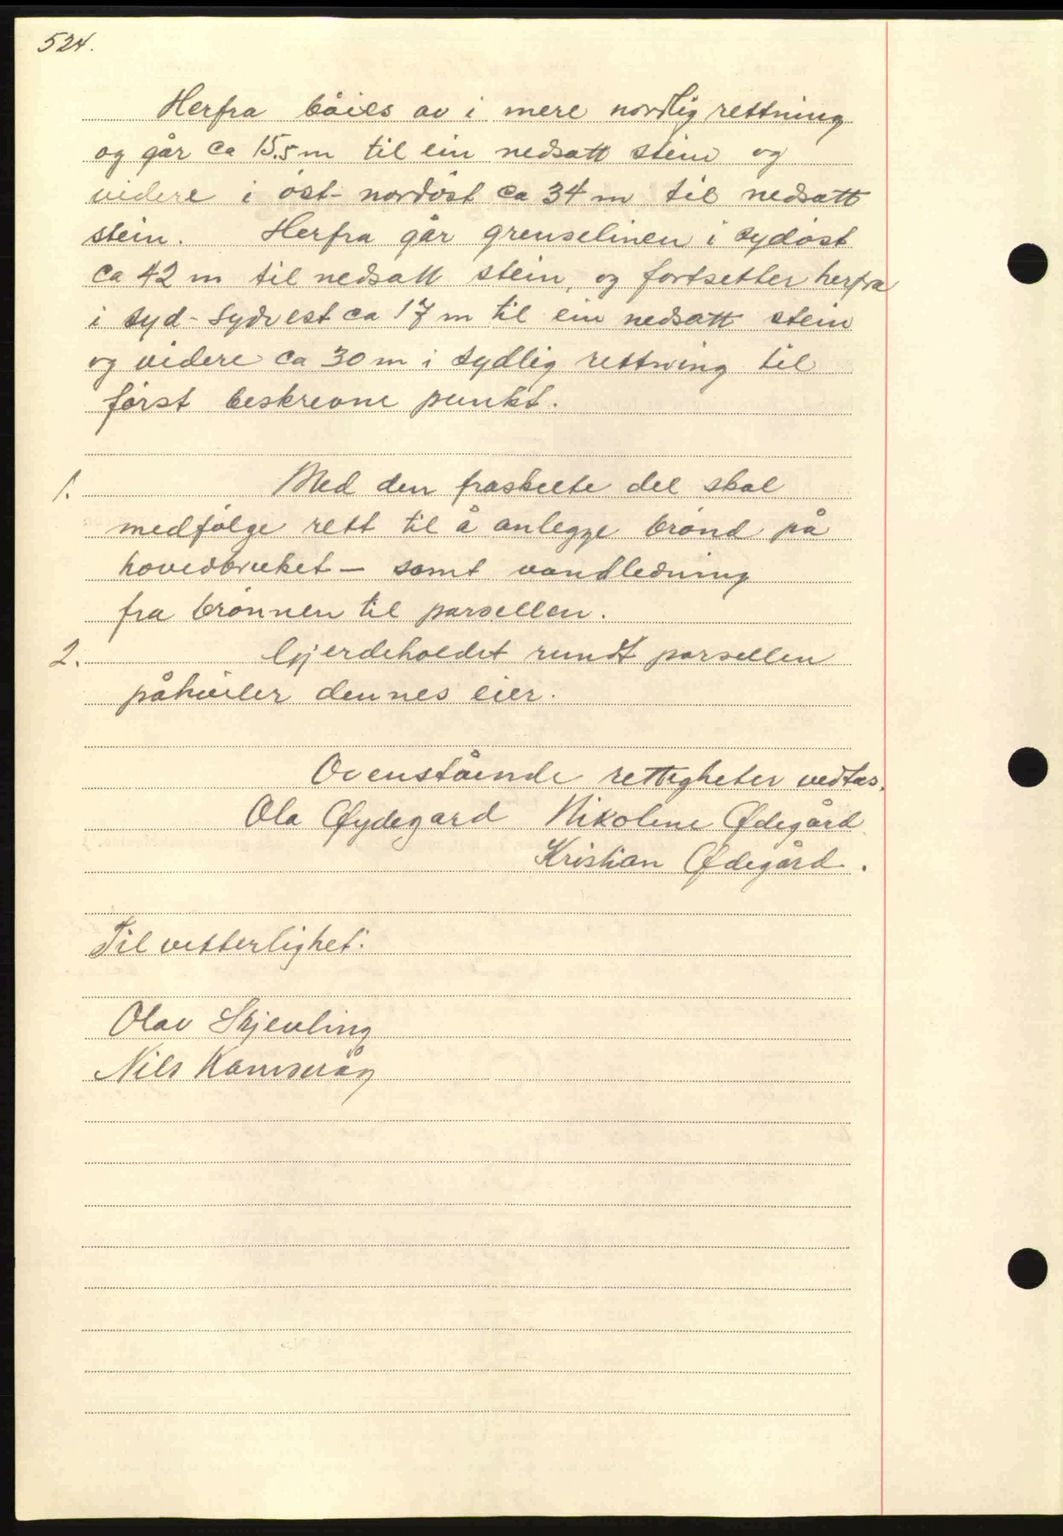 524.
Herfra bóies av i mere nordlig rettning
og går ca 15.5 m til ein nedsatt stein og
videre i óst-nordóst ca 34 m til nedsatt
stein. Herfra går grenselinen i sydóst
ca 42 m til nedsatt stein, og fortsetter herfra
i syd-sydvest ca 17 m til ein nedsatt stein
og videre ca 30 m i sydlig rettning til
fórst beskrevne punkt.
1. Med den fraskilte del skal
medfólge rett til å anlegge brónd på
hovedbruket – samt vandledning
fra brónnen til parsellen.
2. Gjerdeholdet rundt parsellen
påhviler dennes eier.
Ovenstående rettigheter vedtas.
Ola Øydegard Nikoline Ødegård
Kristian Ødegård.
Til vitterlighet:
Olav Skjevling
Nils